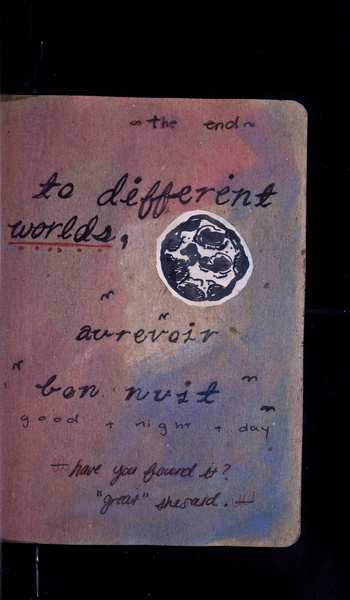 ~ the end ~
to different
worlds,
aurevoir
bon nuit
good + night + day
# have you found it?
"great" she said. #